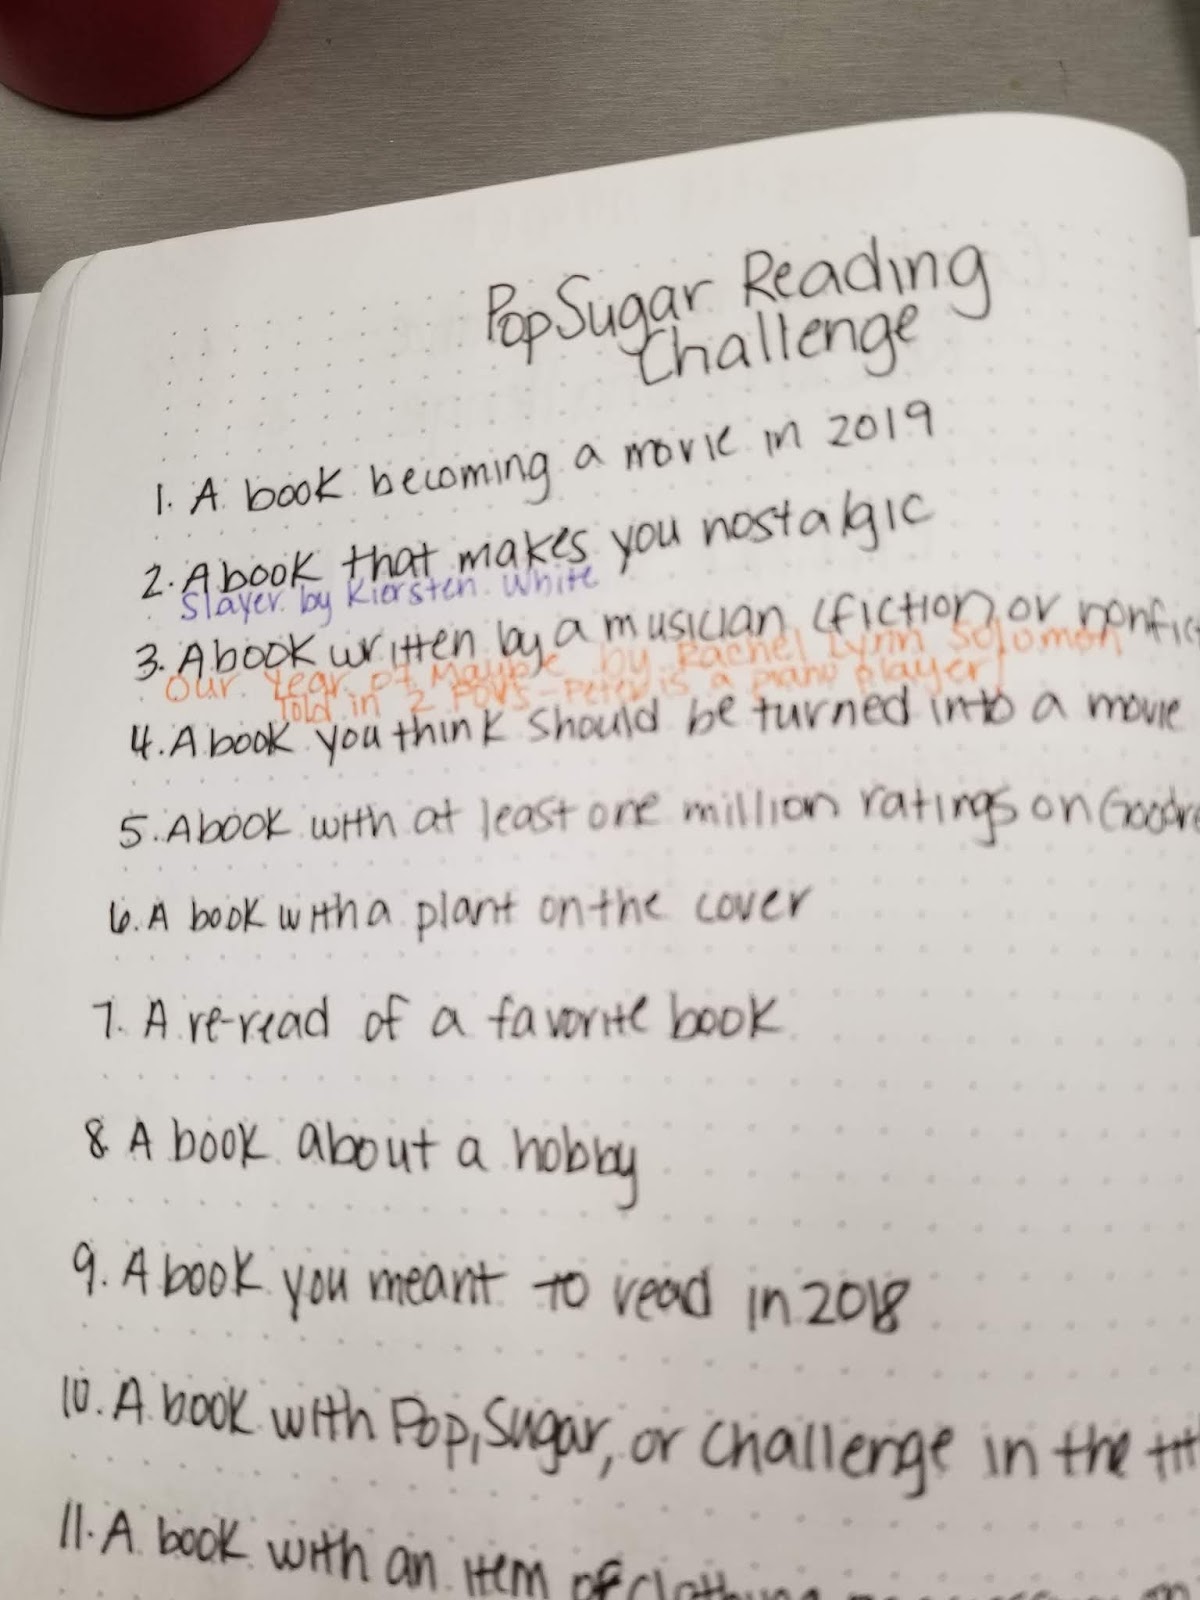 PopSugar Reading
Challenge
1. A book becoming a movie in 2019
2. A book that makes you nostalgic
Slayer by Kiersten White
3. A book written by a musician (fiction or nonfic
Our Year of Maybe by Rachel Lynn Solomon
Told in 2 POVs - Peter is a piano player
4. A book you think should be turned into a movie
5. A book with at least one million ratings on Goodre
6. A book with a plant on the cover
7. A re-read of a favorite book
8. A book about a hobby
9. A book you meant to read in 2018
10. A book with Pop, Sugar, or Challenge in the tit
11. A book with an item of clothing